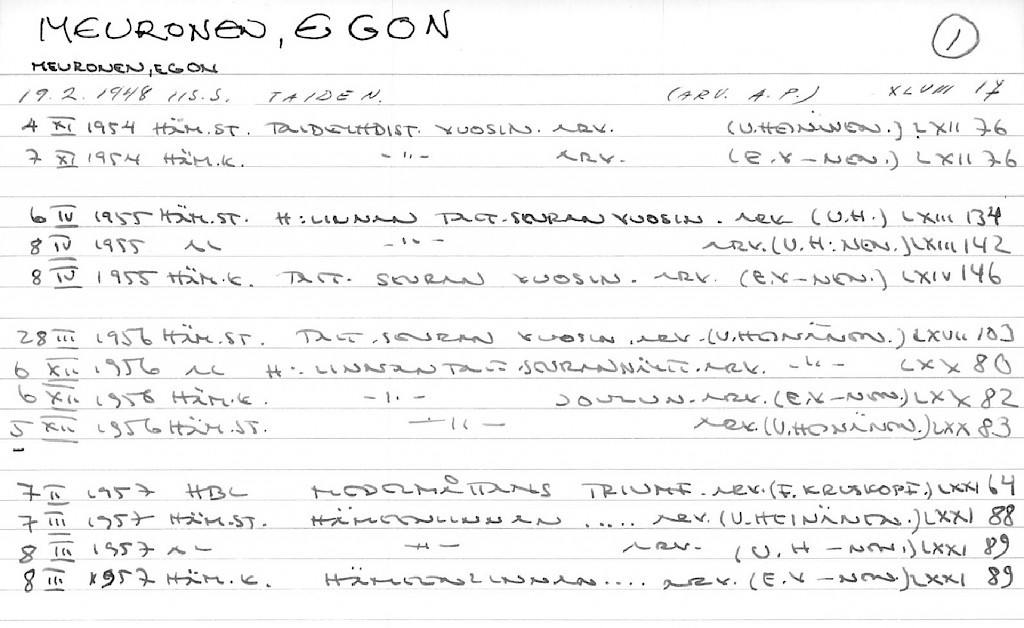 MEURONEN, EGON
1
MEURONEN, EGON
19.2.1948 US.S. TAIDEN. (ARV. A.P.) XLVIII 17
4 XI 1954 HÄM.ST. TAIDEYHDIST. VUOSIN. ARV. (U.HEINÄNEN.) LXII 76
7 XI 1954 HÄM.K. -"- ARV. (E.V-NEN.) LXII 76
6 IV 1955 HÄM.ST. H:LINNAN TAIT.SEURAN VUOSIN. ARV. (U.H.) LXIII 134
8 IV 1955 AL -"- ARV. (U.H:NEN.) LXIII 142
8 IV 1955 HÄM.K. TAIT. SEURAN VUOSIN. ARV. (E.V-NEN.) LXIV 146
28 III 1956 HÄM.ST. TAIT.SEURAN VUOSIN. ARV. (U.HEINÄNEN.) LXVII 103
6 XII 1956 AL H:LINNAN TAIT.SEURAN NÄYTT. ARV. -"- LXX 80
6 XII 1956 HÄM.K. -"- JOULUN. ARV. (E.V-NEN.) LXX 82
5 XII 1956 HÄM.ST. -"- ARV. (U.HEINÄNEN.) LXX 83
7 II 1957 HBL MEDELMÅTTANS TRIUMF. ARV. (E.KRUSKOPF.) LXXI 64
7 III 1957 HÄM.ST. HÄMEENLINNAN ..... ARV. (U.HEINÄNEN.) LXXI 88
8 III 1957 AL -"- ARV. (U.H-NEN.) LXXI 89
8 III 1957 HÄM.K. HÄMEENLINNAN.... ARV. (E.V-NEN.) LXXI 89